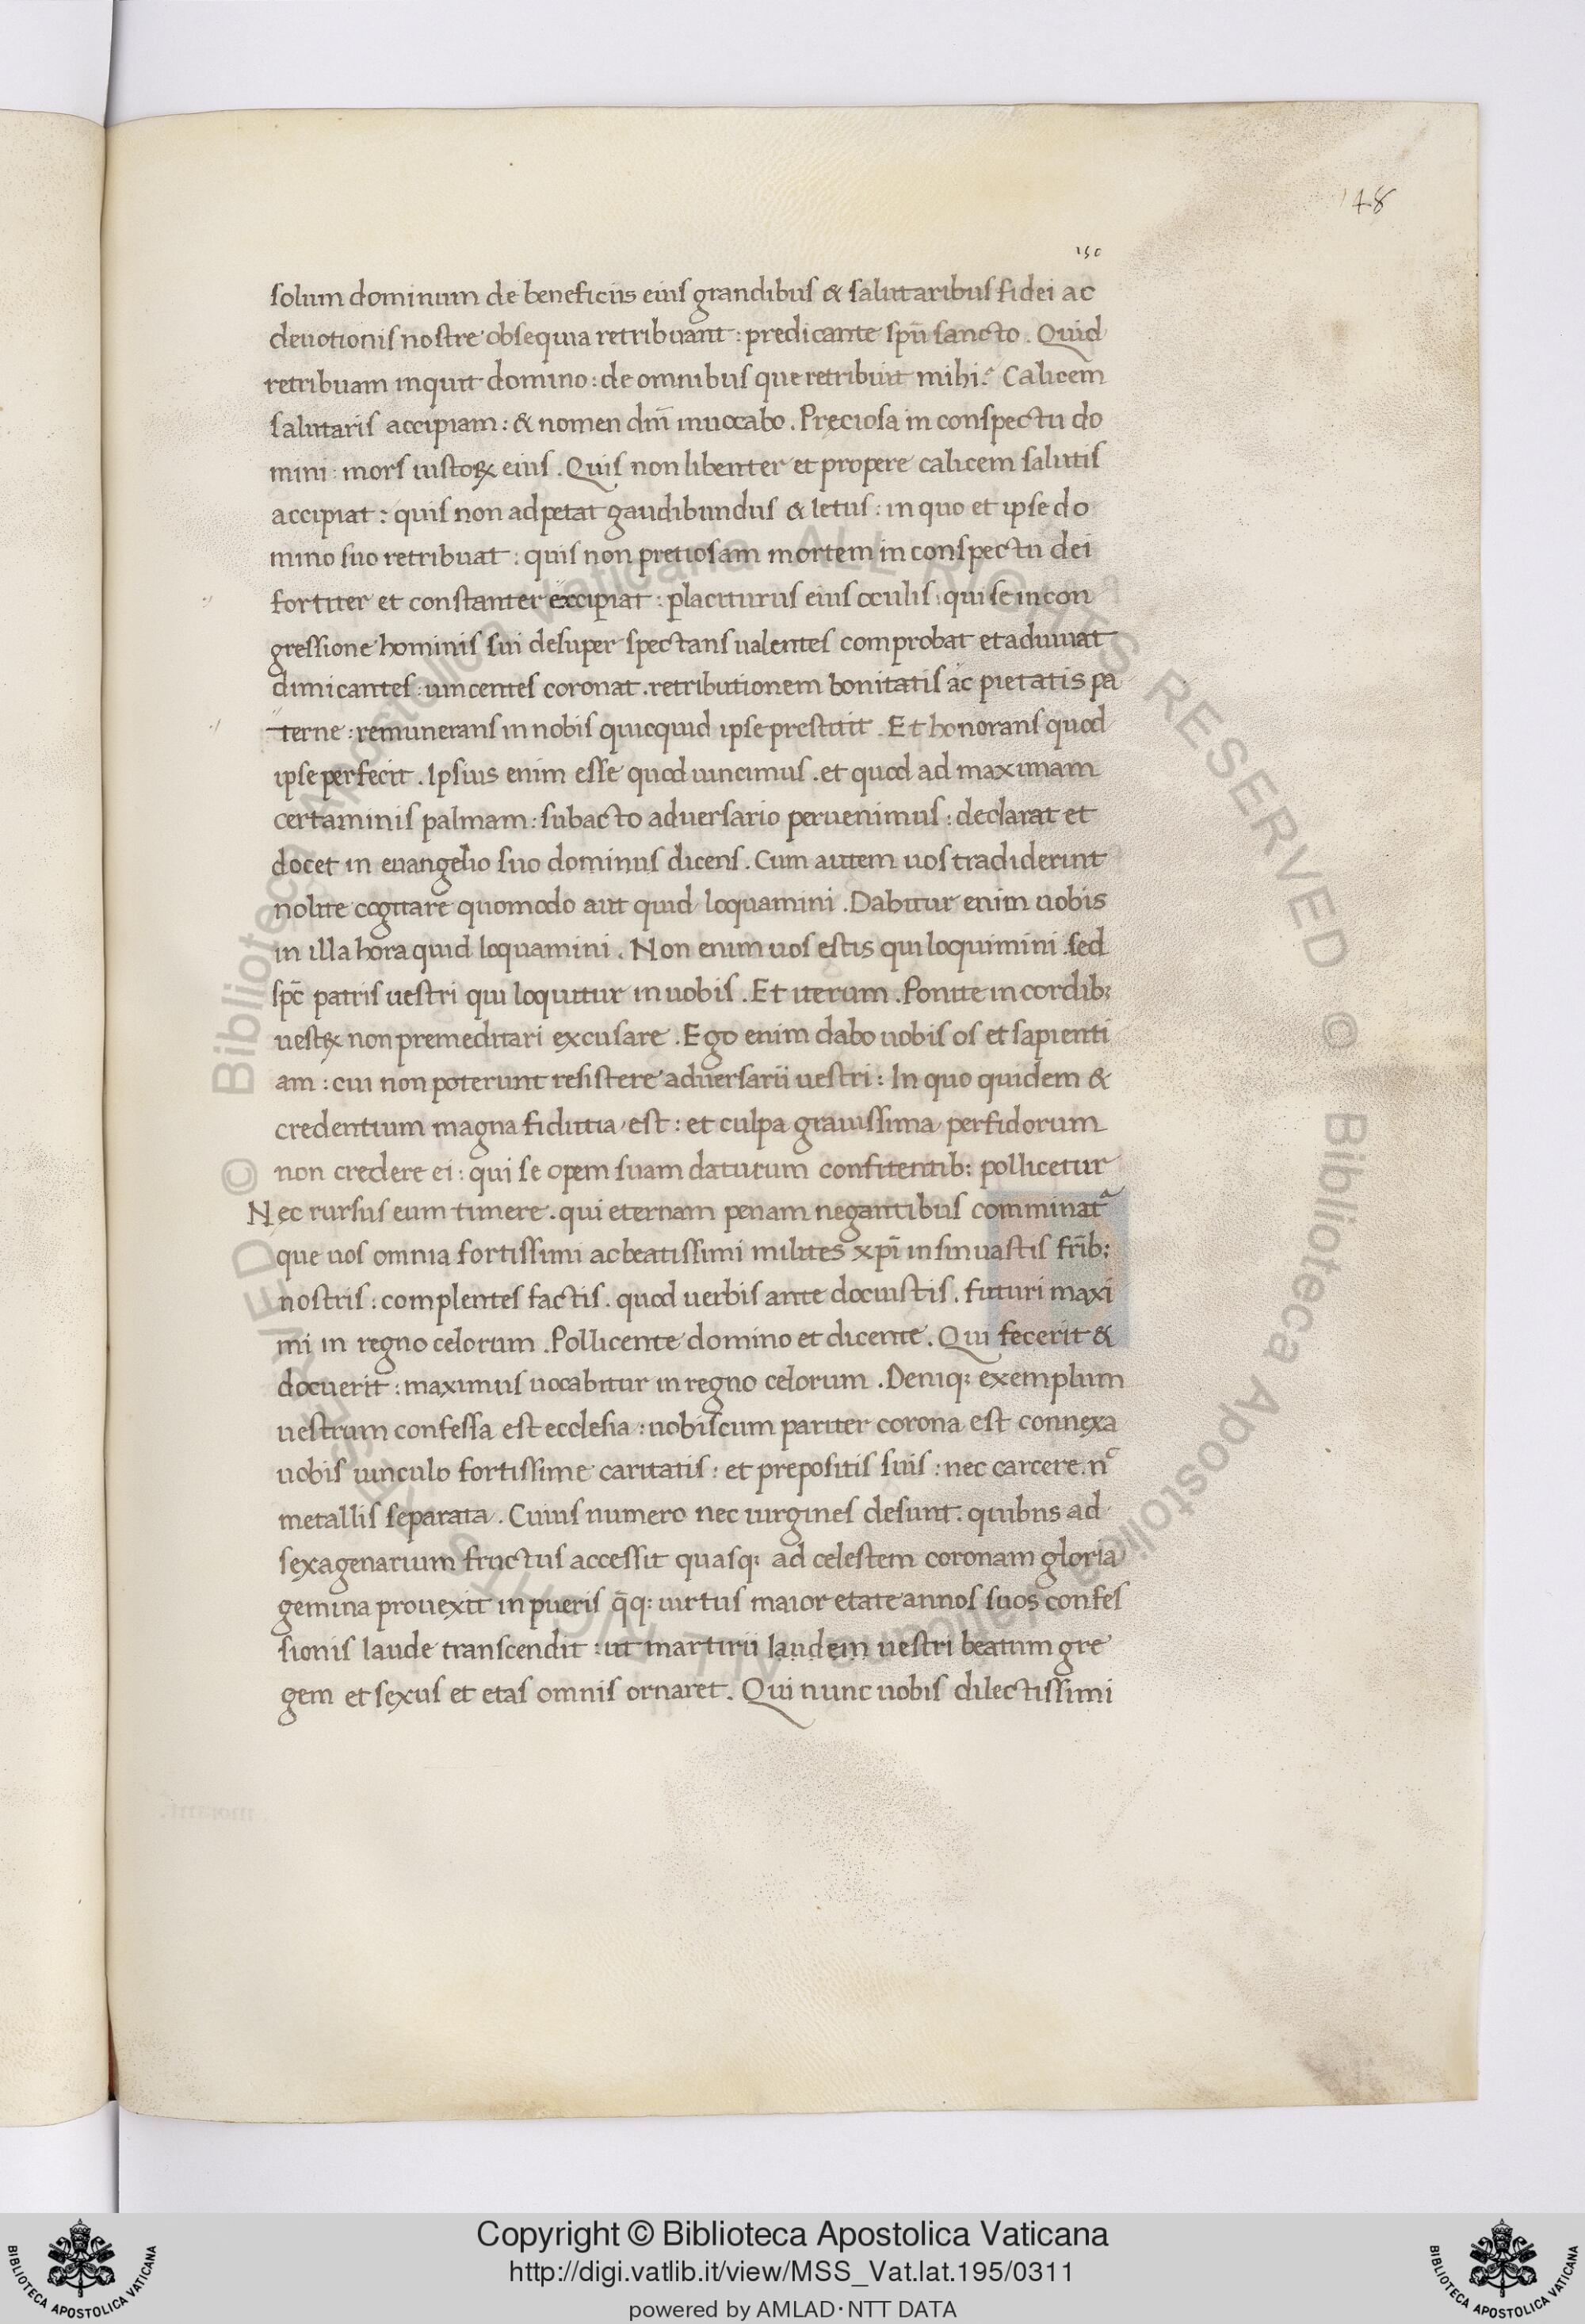 148
150
solum dominum de beneficiis eius grandibus & salutaribus fidei ac
deuotionis nostre obsequia retribuant : predicante spū sancto . Quid
retribuam inquit domino : de omnibus que retribuit mihi ? Calicem
salutaris accipiam : & nomen dnī inuocabo . Preciosa in conspectu do
mini : mors iustoꝝ eius . Quis non libenter et propere calicem salutis
accipiat : quis non adpetat gaudibundus & letus : in quo et ipse do
mino suo retribuat : quis non pretiosam mortem in conspectu dei
fortiter et constanter excipiat : placiturus eius oculis : qui se in con
gressione hominis sui desuper spectans ualentes comprobat et adiuuat
dimicantes : uincentes coronat . retributionem bonitatis ac pietatis pa
terne : remunerans in nobis quicquid ipse prestitit . Et honorans quod
ipse perfecit . Ipsius enim esse quod uincimus . et quod ad maximam
certaminis palmam : subacto aduersario peruenimus : declarat et
docet in euangelio suo dominus dicens . Cum autem uos tradiderint
nolite cogitare quomodo aut quid loquamini . Dabitur enim uobis
in illa hora quid loquamini . Non enim uos estis qui loquimini . sed
spc̄ patris uestri qui loquitur in uobis . Et iterum . Ponite in cordib;
uestꝝ non premeditari excusare . Ego enim dabo uobis os et sapienti
am : cui non poterunt resistere aduersarii uestri : In quo quidem &
credentium magna fidutia est : et culpa grauissima perfidorum
non credere ei : qui se opem suam daturum confitentib: pollicetur
Nec rursus eum timere . qui eternam penam negantibus comminat᷑
que uos omnia fortissimi ac beatissimi milites xpī insinuastis fr̄ib;
nostris : complentes factis . quod uerbis ante docuistis . futuri maxi
mi in regno celorum . Pollicente domino et dicente . Qui fecerit &
docuerit : maximus uocabitur in regno celorum . Deniq; exemplum
uestrum confessa est ecclesia : uobiscum pariter corona est connexa
uobis uinculo fortissime caritatis : et prepositis suis : nec carcere . nͨ
metallis separata . Cuius numero nec uirgines desunt . quibus ad
sexagenarium fructus accessit quasq; ad celestem coronam gloria
gemina prouexit in pueris q̄q; uirtus maior etate annos suos confes
sionis laude transcendit : ut martirii laudem uestri beatum gre
gem et sexus et etas omnis ornaret . Qui nunc uobis dilectissimi
© Biblioteca Apostolica Vaticana ALL RIGHTS RESERVED © Biblioteca Apostolica Vaticana ALL RIGHTS RESERVED
Copyright © Biblioteca Apostolica Vaticana
http://digi.vatlib.it/view/MSS_Vat.lat.195/0311
powered by AMLAD·NTT DATA
BIBLIOTECA APOSTOLICA VATICANA
BIBLIOTECA APOSTOLICA VATICANA